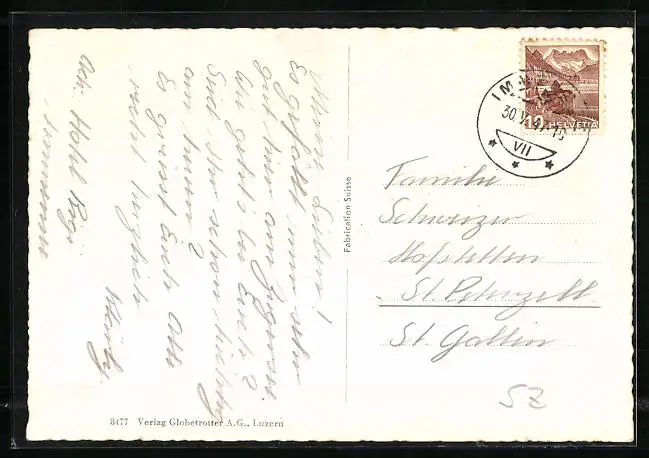 Meine Lieben!
Es gefällt mir sehr
gut hier am
Wie geht's bei Euch?
Seid ihr schon
am heuen?
Es grüsst Euch Alle
recht herzlich
Adr. Hotel Rigi
Immensee
8477 Verlag Globetrotter A.G., Luzern
Fabrication Suisse
IM
30.V
VII
10 HELVETIA
Familie
Schweizer
Hofstetten
St. Peterzell
St. Gallen
SZ